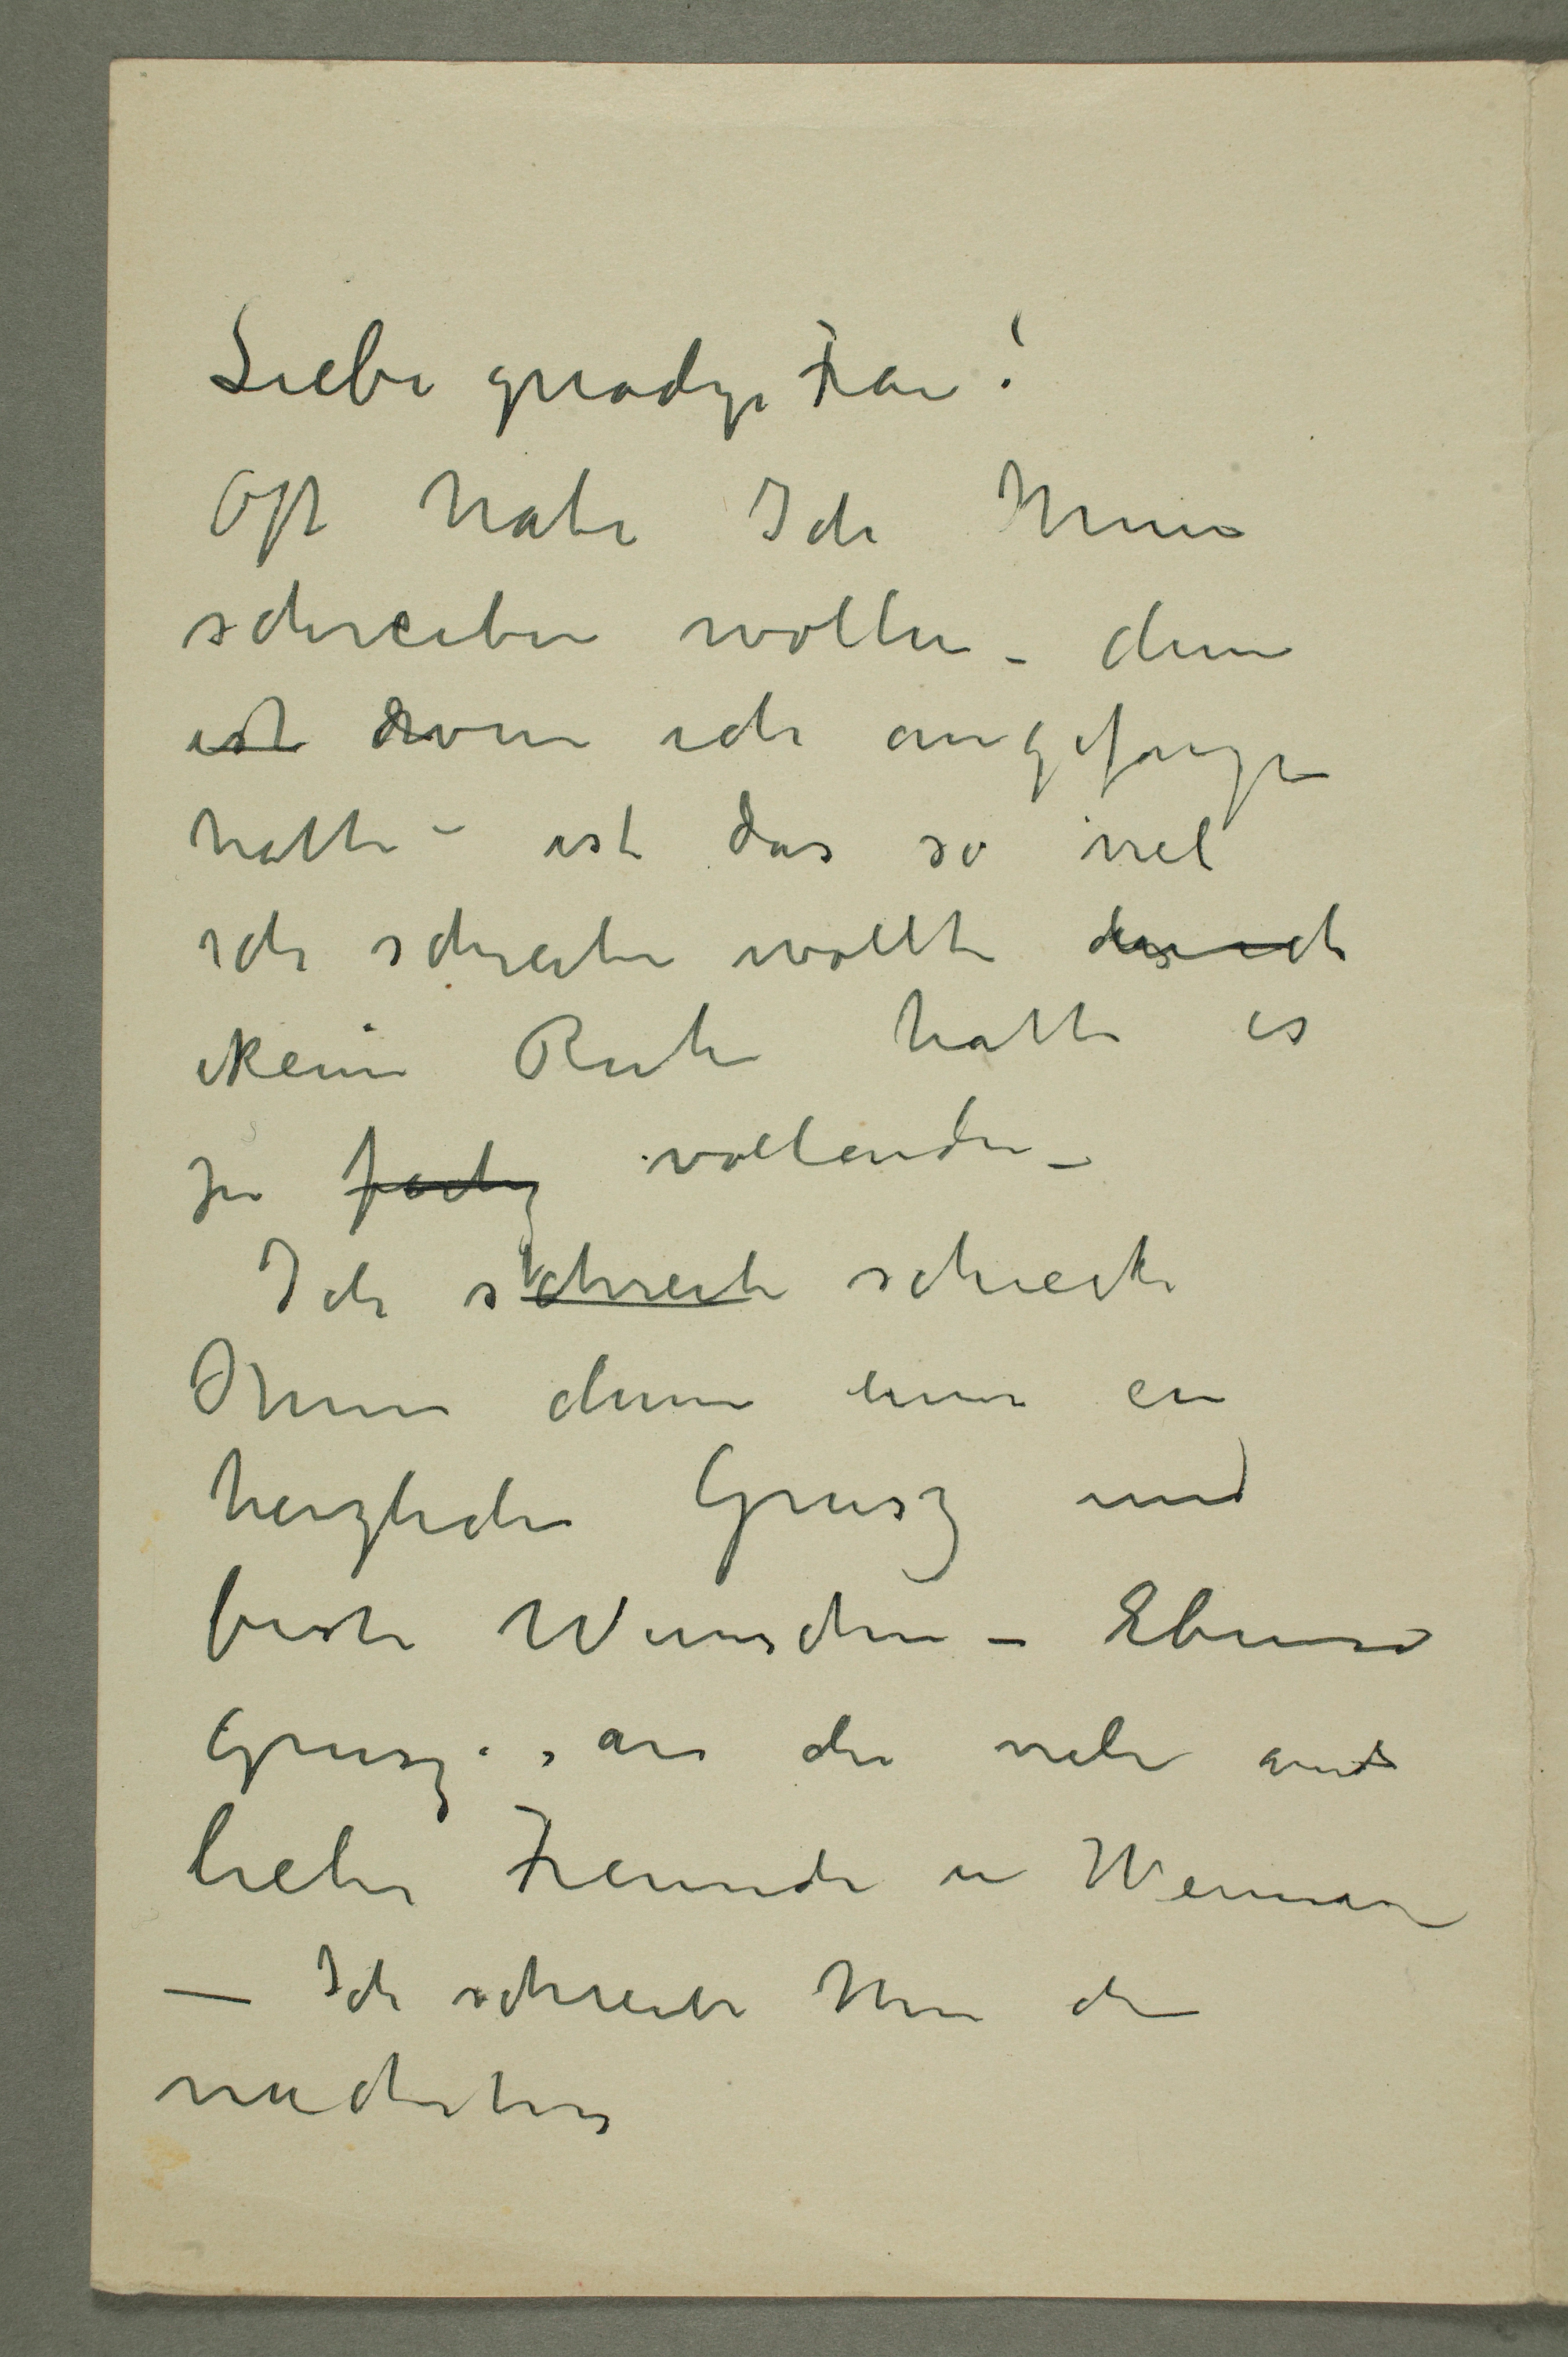 Liebe gnadige Frau!
Oft habe Ich Ihnen
schreiben wollen – denn
ist wenn ich angefangen
hatte – ist das so viel
ich schreiben wollte das ich
keine Ruhe hatte es
zu fertig vollenden –
Ich schreibe schicke
Ihnen denn einen
herzlichen Grusz und
beste Wunschen – Ebenso
Grusz. an die viele and
lieben Freunde in Weimar
– Ich schreibe Ihnen
nachstens